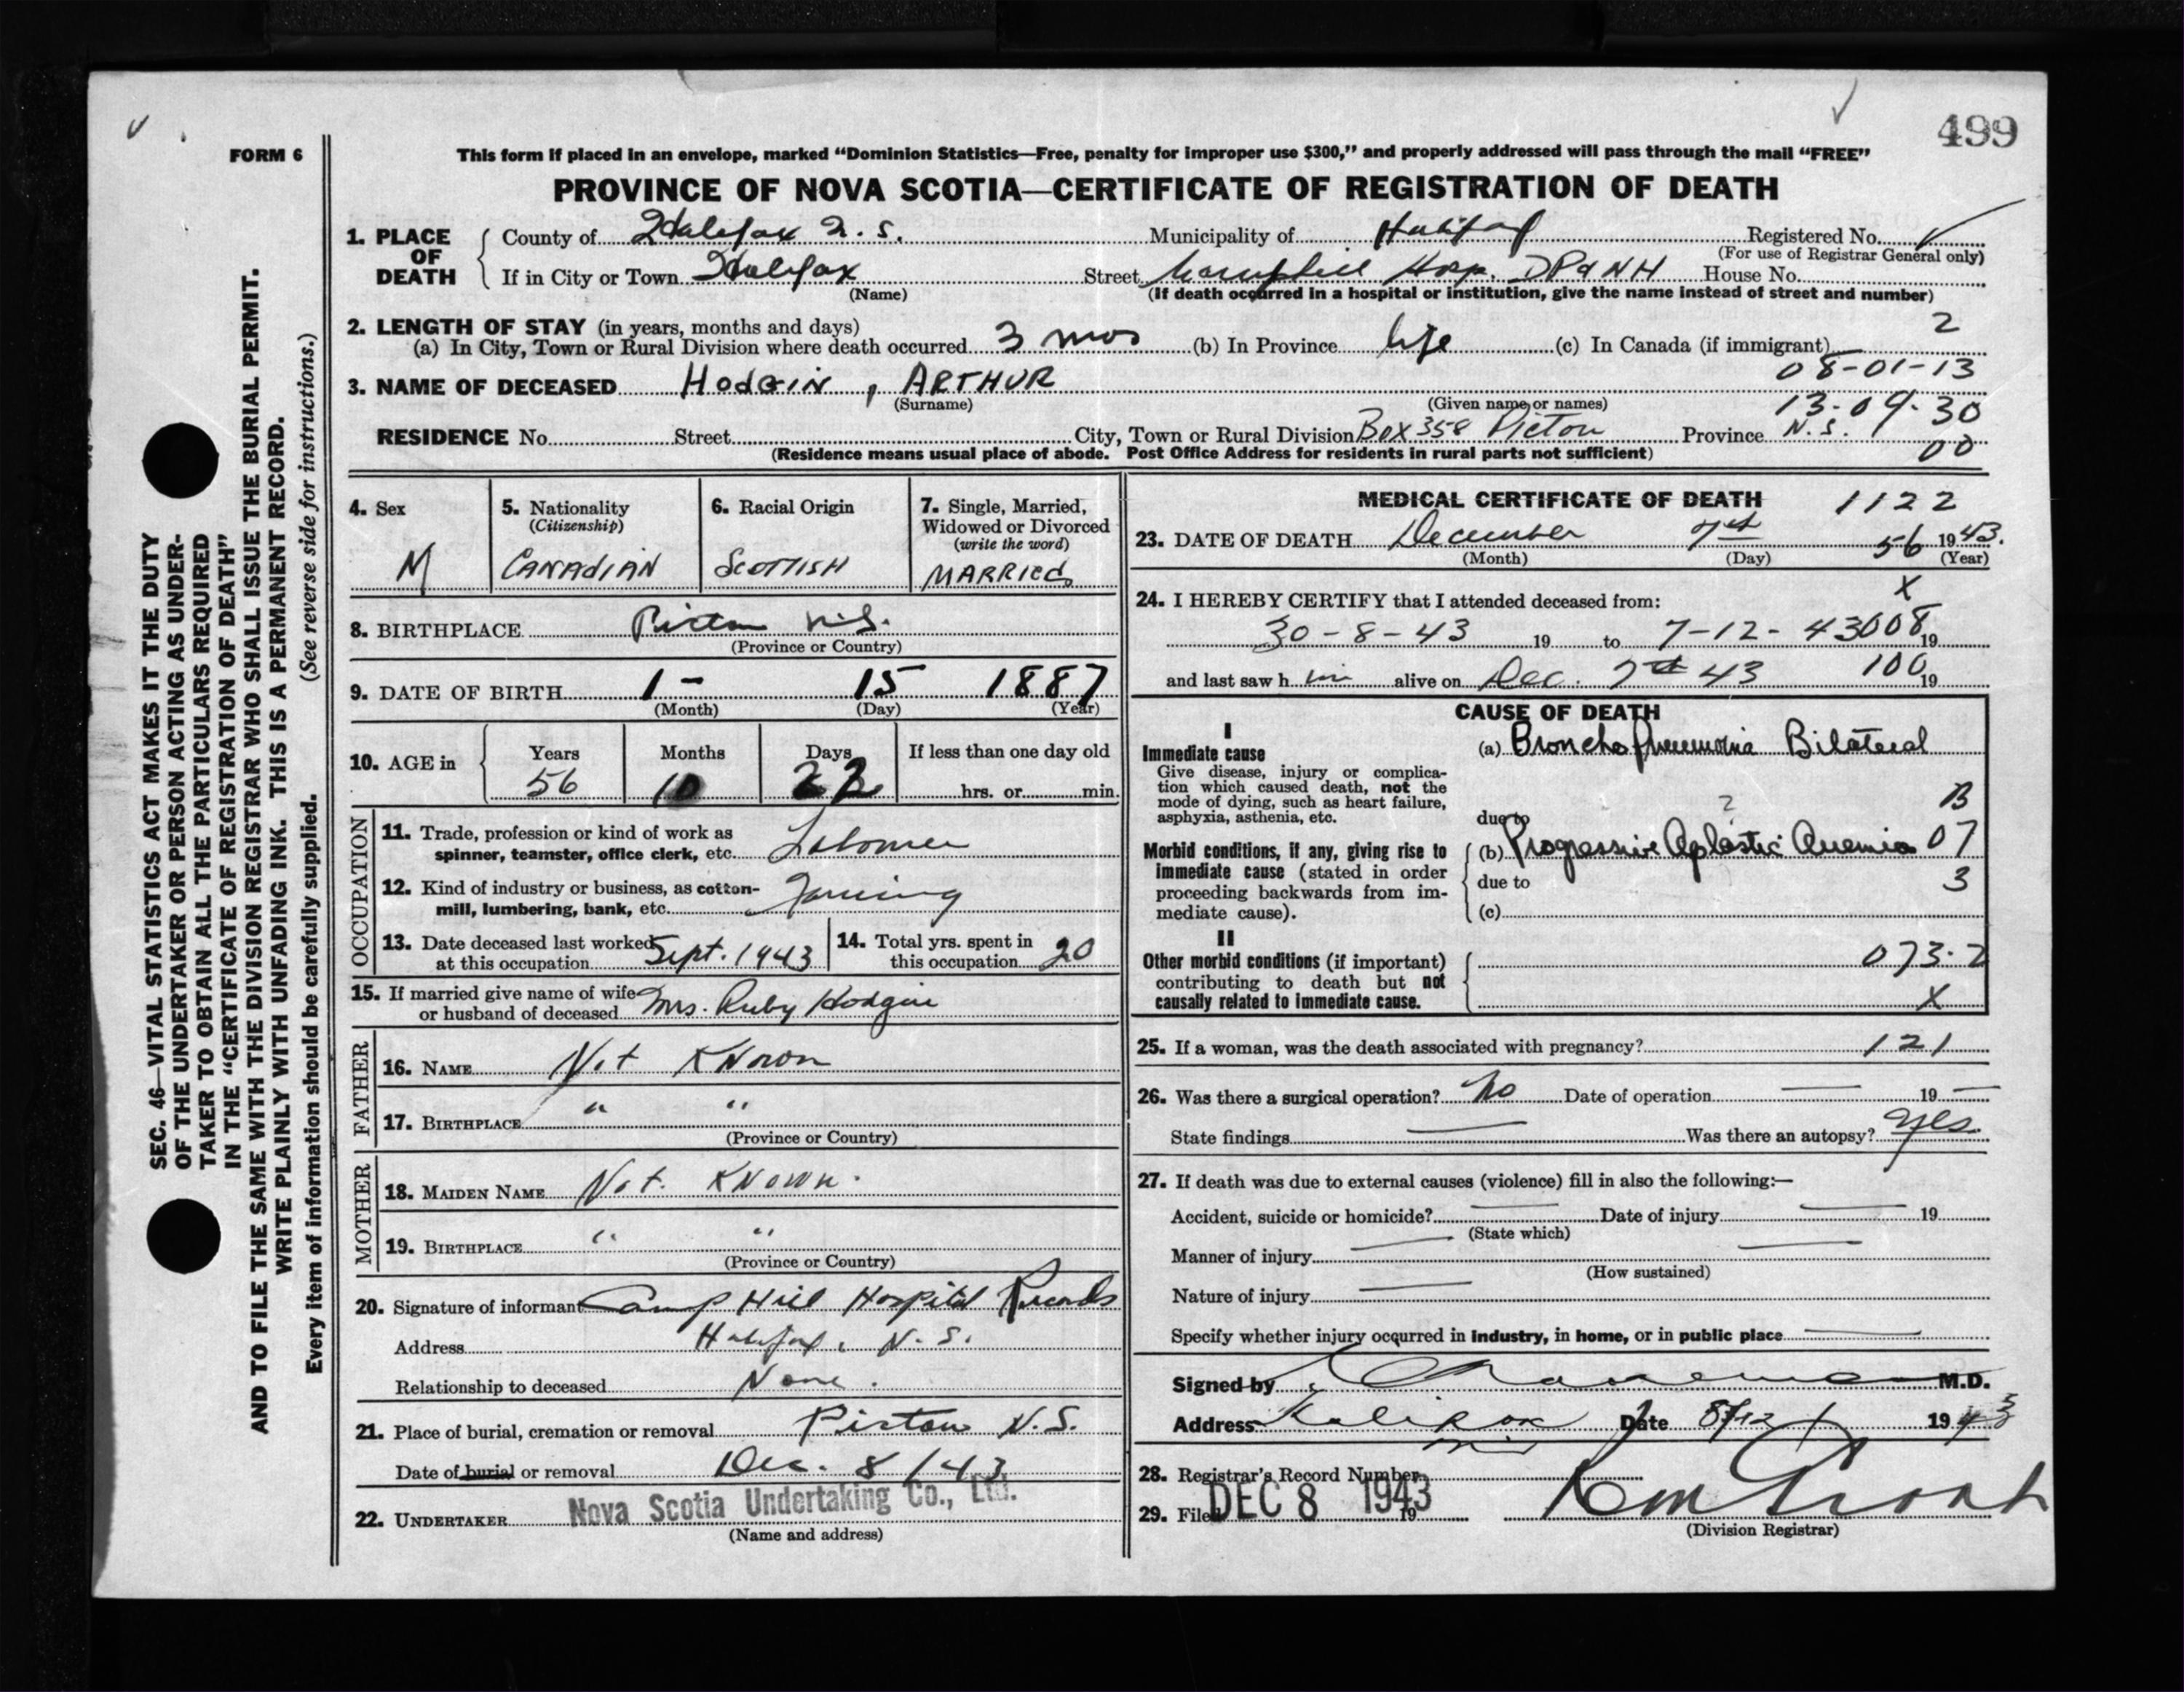 499
FORM 6
This form if placed in an envelope, marked “Dominion Statistics—Free, penalty for improper use $300,” and properly addressed will pass through the mail “FREE”
PROVINCE OF NOVA SCOTIA—CERTIFICATE OF REGISTRATION OF DEATH
SEC. 46—VITAL STATISTICS ACT MAKES IT THE DUTY
OF THE UNDERTAKER OR PERSON ACTING AS UNDER-
TAKER TO OBTAIN ALL THE PARTICULARS REQUIRED
IN THE “CERTIFICATE OF REGISTRATION OF DEATH”
AND TO FILE THE SAME WITH THE DIVISION REGISTRAR WHO SHALL ISSUE THE BURIAL PERMIT.
WRITE PLAINLY WITH UNFADING INK. THIS IS A PERMANENT RECORD.
Every item of information should be carefully supplied. (See reverse side for instructions.)
1. PLACE OF DEATH
County of Halifax N.S. Municipality of Halifax Registered No.
(For use of Registrar General only)
If in City or Town Halifax Street Camphill Hosp. DP&NH House No.
(Name) (If death occurred in a hospital or institution, give the name instead of street and number)
2. LENGTH OF STAY (in years, months and days) 2
(a) In City, Town or Rural Division where death occurred 3 mos (b) In Province life (c) In Canada (if immigrant)
08-01-13
3. NAME OF DECEASED Hodgin, ARTHUR
(Surname) (Given name or names) 13-09-30
RESIDENCE No. Street City, Town or Rural Division Box 358 Pictou Province N.S.
(Residence means usual place of abode. Post Office Address for residents in rural parts not sufficient) 00
4. Sex
M
5. Nationality
(Citizenship)
CANADIAN
6. Racial Origin
SCOTTISH
7. Single, Married,
Widowed or Divorced
(write the word)
MARRIED
8. BIRTHPLACE Pictou N.S.
(Province or Country)
9. DATE OF BIRTH 1- 15 1887
(Month) (Day) (Year)
10. AGE in
Years Months Days If less than one day old
56 10 22 hrs. or min.
OCCUPATION
11. Trade, profession or kind of work as
spinner, teamster, office clerk, etc. Labourer
12. Kind of industry or business, as cotton-
mill, lumbering, bank, etc. Farming
13. Date deceased last worked
at this occupation Sept. 1943
14. Total yrs. spent in
this occupation 20
15. If married give name of wife
or husband of deceased Mrs. Ruby Hodgin
FATHER
16. NAME Not Known
17. BIRTHPLACE " "
(Province or Country)
MOTHER
18. MAIDEN NAME Not Known.
19. BIRTHPLACE " "
(Province or Country)
20. Signature of informant Camp Hill Hospital Records
Address Halifax, N.S.
Relationship to deceased None.
21. Place of burial, cremation or removal Pictou N.S.
Date of burial or removal Dec. 8/43
22. UNDERTAKER Nova Scotia Undertaking Co., Ltd.
(Name and address)
MEDICAL CERTIFICATE OF DEATH 1122
23. DATE OF DEATH December 7th 56 1943.
(Month) (Day) (Year)
X
24. I HEREBY CERTIFY that I attended deceased from:
30-8-43 19 to 7-12-43 008 19
and last saw h im alive on Dec. 7th 43 100 19
CAUSE OF DEATH
I
Immediate cause
Give disease, injury or complica-
tion which caused death, not the
mode of dying, such as heart failure,
asphyxia, asthenia, etc.
(a) Broncho pneumonia Bilateral
? B
due to
Morbid conditions, if any, giving rise to
immediate cause (stated in order
proceeding backwards from im-
mediate cause).
(b) Progressive Aplastic Anemia 07
due to 3
(c)
II
Other morbid conditions (if important)
contributing to death but not
causally related to immediate cause.
073.2
X
25. If a woman, was the death associated with pregnancy? 121
26. Was there a surgical operation? No Date of operation — 19 —
State findings — Was there an autopsy? Yes
27. If death was due to external causes (violence) fill in also the following:—
Accident, suicide or homicide? — Date of injury — 19
(State which)
Manner of injury — —
(How sustained)
Nature of injury —
Specify whether injury occurred in industry, in home, or in public place —
Signed by M.D.
Address Halifax Date 8/12/ 1943
28. Registrar's Record Number
29. Filed DEC 8 1943 19
(Division Registrar)